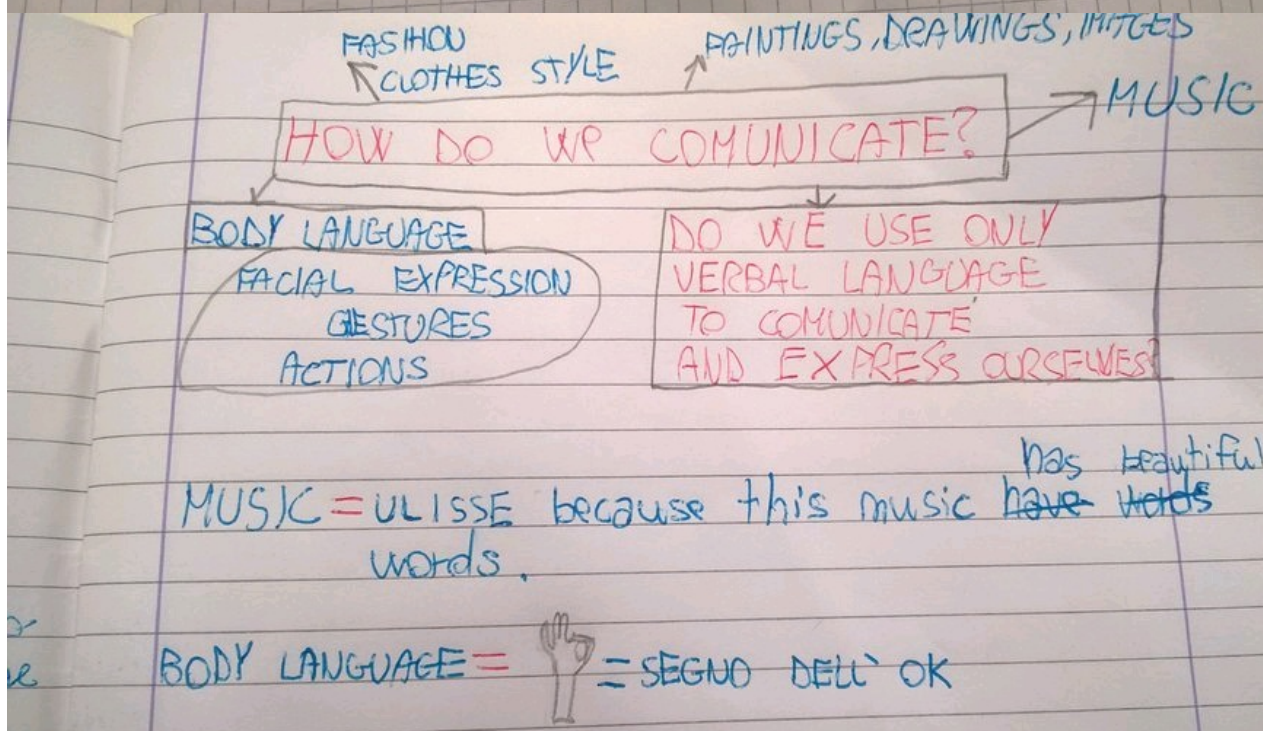 FASHION
CLOTHES STYLE
PAINTINGS, DRAWINGS, IMAGES
MUSIC
HOW DO WE COMUNICATE?
BODY LANGUAGE
FACIAL EXPRESSION
GESTURES
ACTIONS
DO WE USE ONLY
VERBAL LANGUAGE
TO COMUNICATE
AND EXPRESS OURSELVES?
has beautiful
MUSIC = ULISSE because this music have words
words.
BODY LANGUAGE = = SEGNO DELL' OK